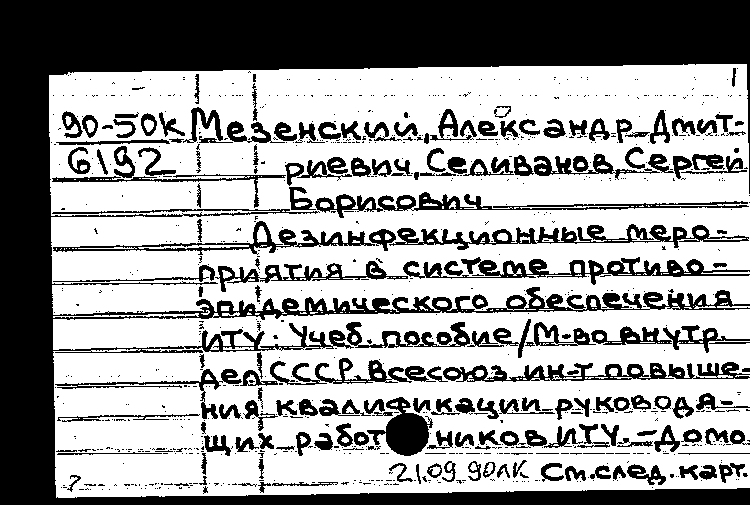 1
90-50К Мезенский, Александр Дмит-
6192 риевич, Селиванов, Сергей
Борисович
Дезинфекционные меро-
приятия в системе противо-
эпидемического обеспечения
ИТУ: Учеб. пособие/М-во внутр.
дел СССР. Всесоюз. ин-т повыше-
ния квалификации руководя-
щих работников ИТУ.-Домо
21.09.90ЛК См.след.карт.